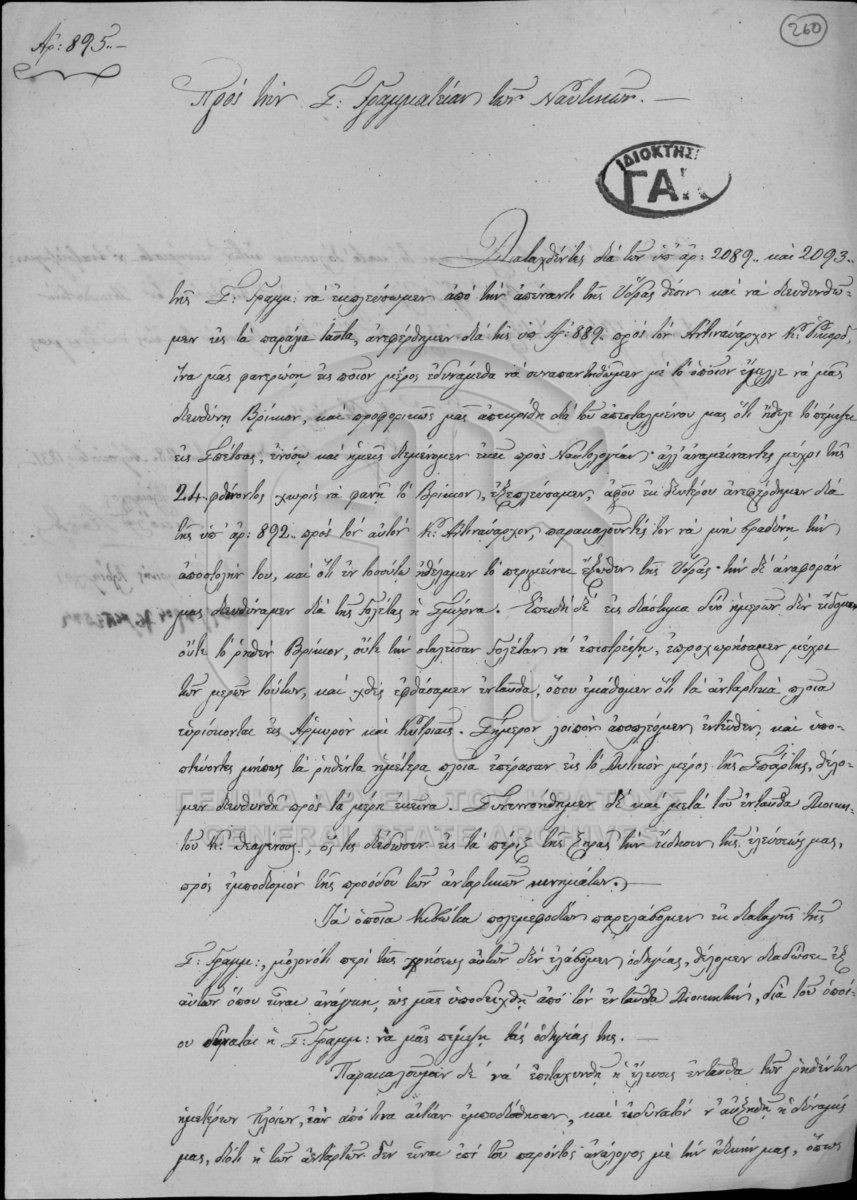 Αρ: 895.-
260
Πρὸς τὴν Γ: Γραμματείαν τῶν Ναυτικῶν. —
ΙΔΙΟΚΤΗΣΙ
ΓΑΚ
Διαταχθέντες διὰ τῶν ὑπ' ἀρ: 2089.. καὶ 2093..
τῆς Γ: Γραμμ: νὰ ἐκπλεύσωμεν ἀπὸ τὴν ἀπέναντι τῆς Ὕδρας θέσιν καὶ νὰ διευθυνθῶ-
μεν εἰς τὰ παράλια ταῦτα, ἀνεφέρθημεν διὰ τῆς ὑπ' Αρ: 889. πρὸς τὸν Ἀντιναύαρχον Κ: Ρίκορδ,
ἵνα μᾶς φανερώσῃ εἰς ποῖον μέρος ἐδυνάμεθα νὰ συναπαντηθῶμεν μὲ τὸ ὁποῖον ἔμελλε νὰ μᾶς
διευθύνῃ Βρίκιον, καὶ προφορικῶς μᾶς ἀπεκρίθη διὰ τοῦ ἀπεσταλμένου μας ὅτι ἤθελε τὸ πέμψει
εἰς Σπέτσας, ἐνόσῳ καὶ ἡμεῖς διεμένομεν ἐκεῖ πρὸς Ναυτολογίαν· ἀλλ' ἀναμείναντες μέχρι τῆς
24. φθίνοντος χωρὶς νὰ φανῇ τὸ Βρίκιον, ἐξεπλεύσαμεν, ἀφοῦ ἐκ δευτέρου ἀνεφέρθημεν διὰ
τῆς ὑπ' ἀρ: 892.. πρὸς τὸν αὐτὸν Κ: Ἀντιναύαρχον, παρακαλοῦντές τον νὰ μὴ βραδύνῃ τὴν
ἀποστολήν του, καὶ ὅτι ἐν τοσούτῳ ἠθέλαμεν τὸ περιμείνει ἔξωθεν τῆς Ὕδρας· τὴν δὲ ἀναφοράν
μας διευθύναμεν διὰ τῆς Γολέτας ἡ Σμύρνα. Ἐπειδὴ δὲ εἰς διάστημα δύο ἡμερῶν δὲν εἴδομεν
οὔτε τὸ ῥηθὲν Βρίκιον, οὔτε τὴν σταλεῖσαν Γολέταν νὰ ἐπιστρέψῃ, ἐπροχωρήσαμεν μέχρι
τῶν μερῶν τούτων, καὶ χθὲς ἐφθάσαμεν ἐνταῦθα, ὅπου ἐμάθομεν ὅτι τὰ ἀνταρτικὰ πλοῖα
εὑρίσκονται εἰς Ἁρμυρὸν καὶ Κιτριαῖς. Σήμερον λοιπὸν ἀποπλέομεν ἐντεῦθεν, καὶ ὑπο-
πτεύοντες μήπως τὰ ῥηθέντα ἡμέτερα πλοῖα ἐπέρασαν εἰς τὸ Δυτικὸν μέρος τῆς Σπάρτης, θέλο-
μεν διευθυνθῆ πρὸς τὰ μέρη ἐκεῖνα. Συνεννοήθημεν δὲ καὶ μετὰ τοῦ ἐνταῦθα Διοικη-
τοῦ Κ: Θεαγένους, ὅστις διέδωσεν εἰς τὰ πέριξ τῆς ξηρᾶς τὴν εἴδησιν τῆς ἐλεύσεώς μας,
πρὸς ἐμποδισμὸν τῆς προόδου τῶν ἀνταρτικῶν κινημάτων. —
Τὰ ὁποῖα κιβώτια πολεμεφοδίων παρελάβομεν ἐκ διαταγῆς τῆς
Γ: Γραμμ:, μολονότι περὶ τῆς χρήσεως αὐτῶν δὲν ἐλάβομεν ὁδηγίας, θέλομεν διαδώσει ἐξ
αὐτῶν ὅπου εἶναι ἀνάγκη, ὡς μᾶς ὑποδειχθῇ ἀπὸ τὸν ἐνταῦθα Διοικητὴν, διὰ τοῦ ὁποί-
ου δύναται ἡ Γ: Γραμμ: νὰ μᾶς πέμψῃ τὰς ὁδηγίας της. —
Παρακαλοῦμεν δὲ νὰ ἐπιταχυνθῇ ἡ ἔλευσις ἐνταῦθα τῶν ῥηθέντων
ἡμετέρων πλοίων, ἐὰν ἀπό τινα αἰτίαν ἐμποδίσθησαν, καὶ εἰ δυνατὸν ν' αὐξηθῇ ἡ δύναμίς
μας, διότι ἡ τῶν ἀνταρτῶν δὲν εἶναι ἐπὶ τοῦ παρόντος ἀνάλογος μὲ τὴν ἐδικήν μας, ὅπως
ΓΕΝΙΚΑ ΑΡΧΕΙΑ ΤΟΥ ΚΡΑΤΟΥΣ
GENERAL STATE ARCHIVES